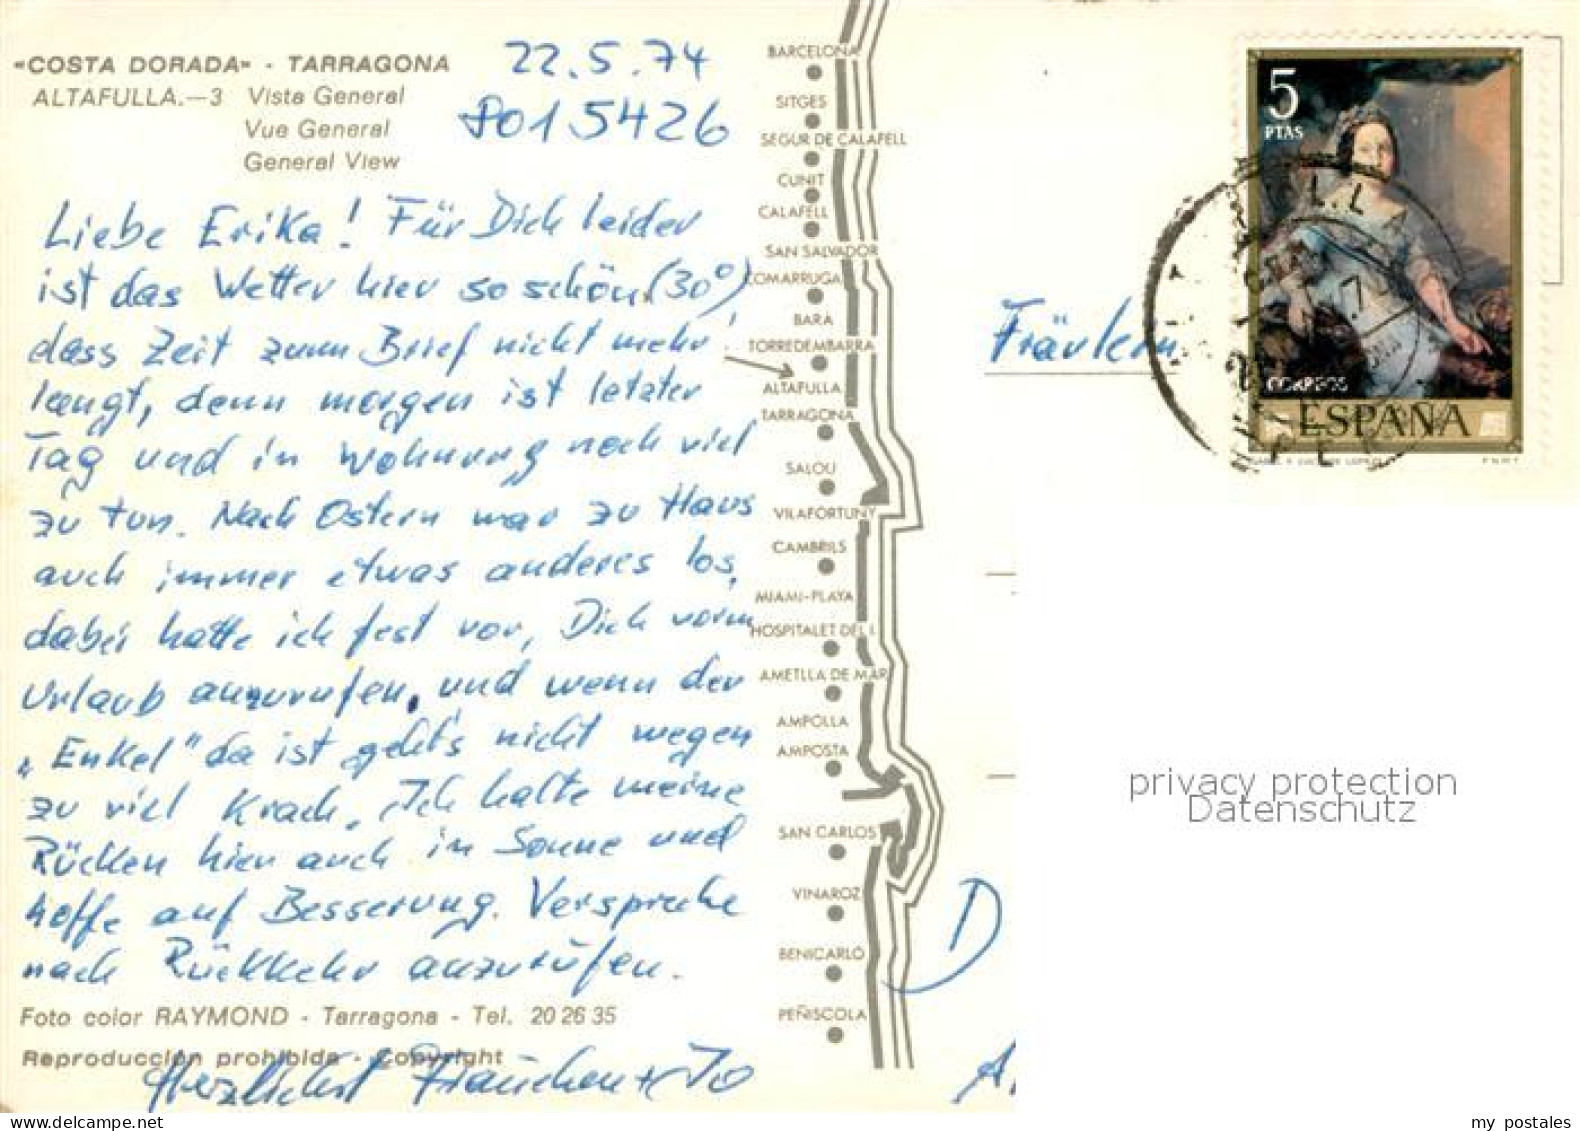 «COSTA DORADA» - TARRAGONA
ALTAFULLA.—3 Vista General
Vue General
General View
22.5.74
8015426
Liebe Erika! Für Dich leider
ist das Wetter hier so schön (30°)
dass Zeit zum Brief nicht mehr
langt, denn morgen ist letzter
Tag und in Wohnung noch viel
zu tun. Nach Ostern war zu Haus
auch immer etwas anderes los,
dabei hatte ich fest vor, Dich vorm
Urlaub anzurufen, und wenn der
„Enkel" da ist geht's nicht wegen
zu viel Krach. Ich halte meine
Rücken hier auch in Sonne und
hoffe auf Besserung. Verspreche
nach Rückkehr anzurufen.
Foto color RAYMOND - Tarragona - Tel. 20 26 35
Reproducción prohibida - Copyright
Herzlichst Fränzchen + Jo
BARCELONA
SITGES
SEGUR DE CALAFELL
CUNIT
CALAFELL
SAN SALVADOR
COMARRUGA
BARA
TORREDEMBARRA
ALTAFULLA
TARRAGONA
SALOU
VILAFORTUNY
CAMBRILS
MIAMI-PLAYA
HOSPITALET DEL I.
AMETLLA DE MAR
AMPOLLA
AMPOSTA
SAN CARLOS
VINAROZ
BENICARLÓ
PEÑISCOLA
5
PTAS
CORREOS
ESPAÑA
F.N.M.T.
Fräulein
D
A.
privacy protection
Datenschutz
my postales